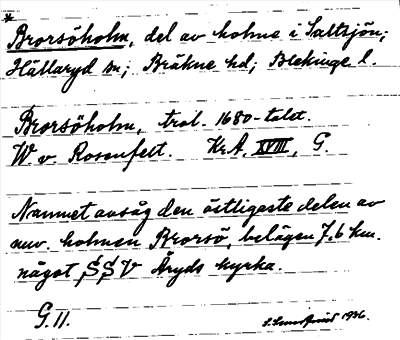 * Brorsöholm, del av holme i Saltsjön;
Hällaryd sn; Bräkne hd; Blekinge l.
Brorsöholm, trol. 1680-talet.
W. v. Rosenfelt. Kr.A. XVIII, G.
Namnet avsåg den östligaste delen av
nuv. holmen Brorsö, belägen 7,6 km.
något SSV Åryds kyrka.
G. 11.
1936.